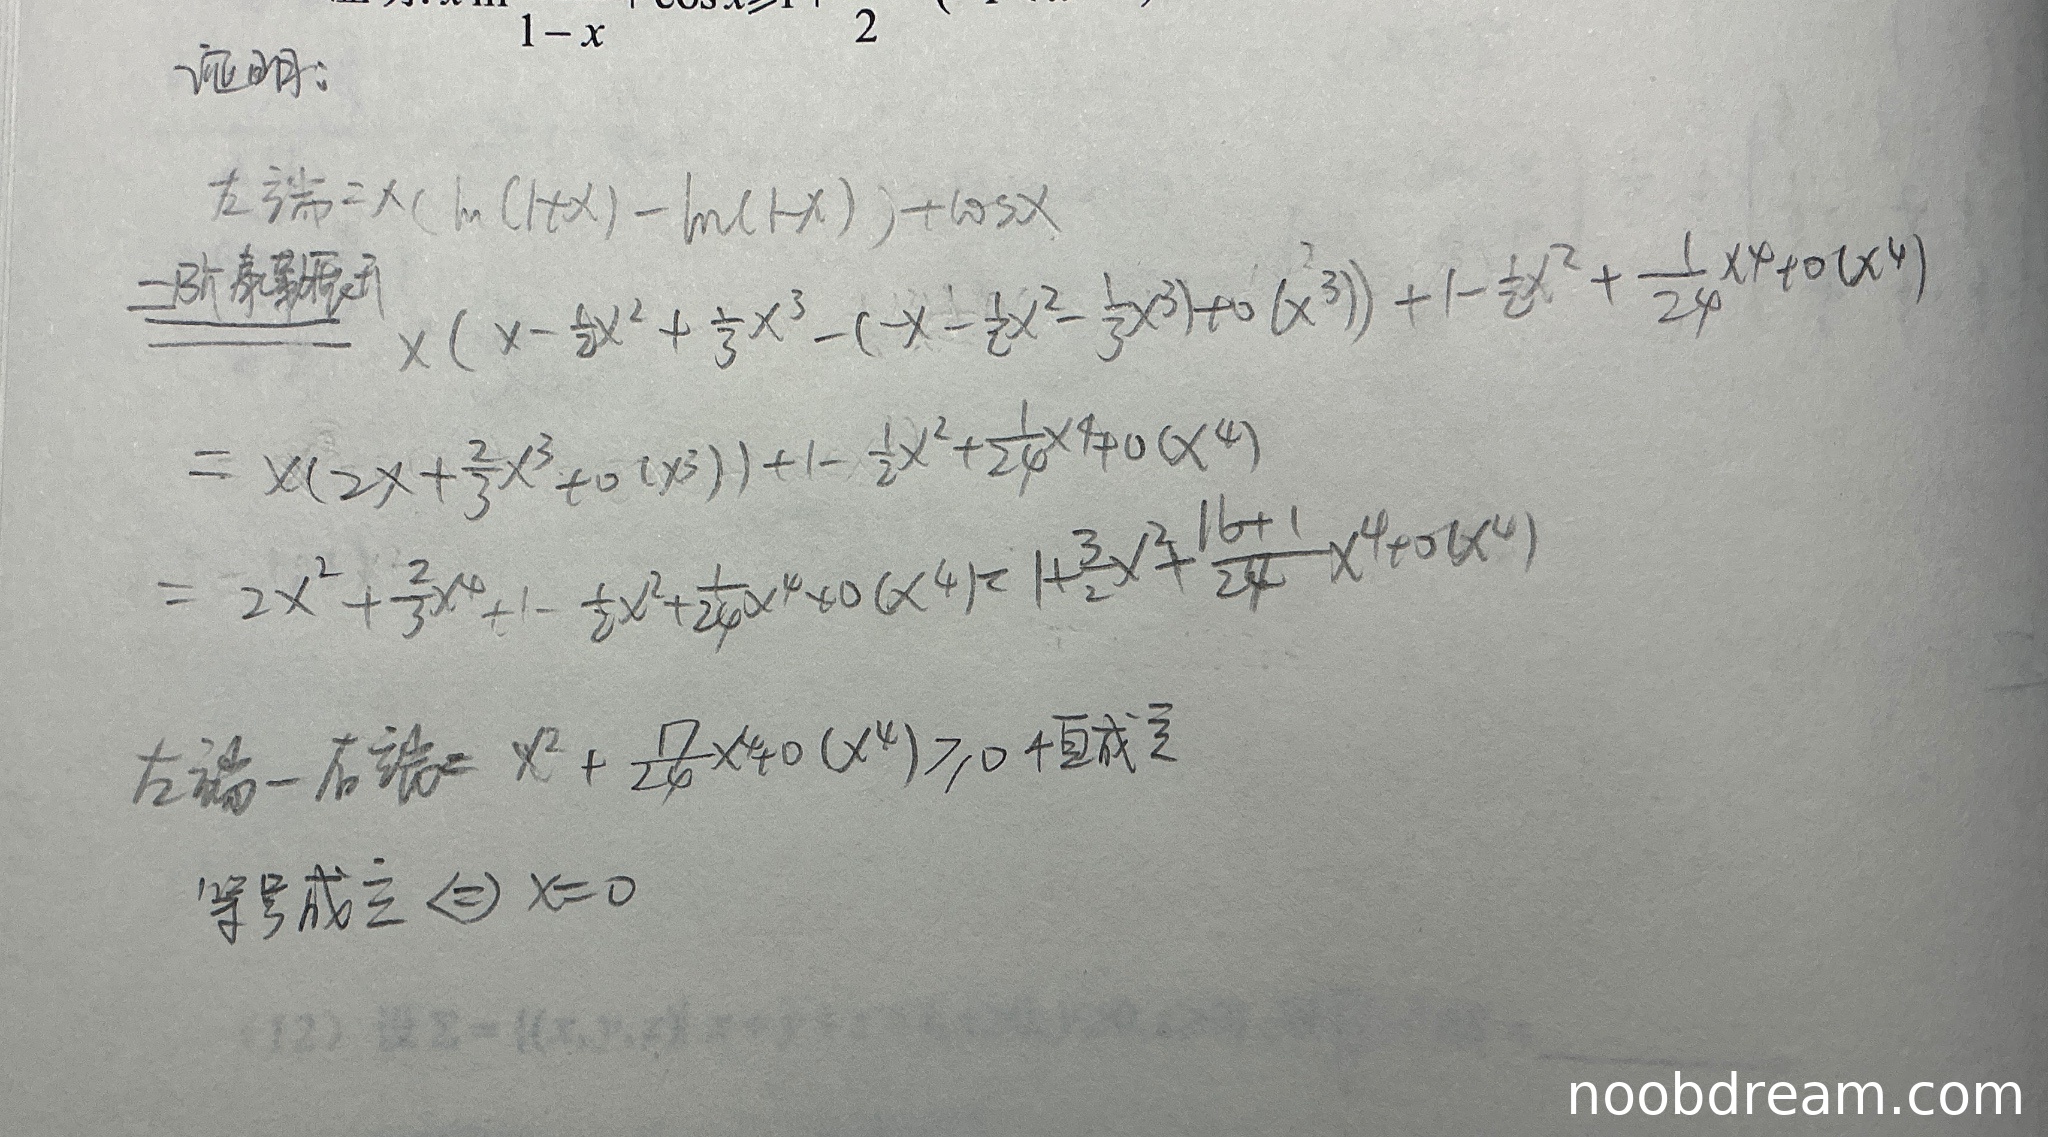 1-x 2
证明:
左端=x(ln(1+x)-ln(1-x))+cosx
二阶泰勒展开 x(x-½x²+⅓x³-(-x-½x²-⅓x³)+o(x³))+1-½x²+1/24x⁴+o(x⁴)
=x(2x+⅔x³+o(x³))+1-½x²+1/24x⁴+o(x⁴)
=2x²+⅔x⁴+1-½x²+1/24x⁴+o(x⁴)=1+3/2x²+(16+1)/24x⁴+o(x⁴)
左端-右端=x²+17/24x⁴+o(x⁴)≥0恒成立
等号成立⇔x=0
noobdream.com